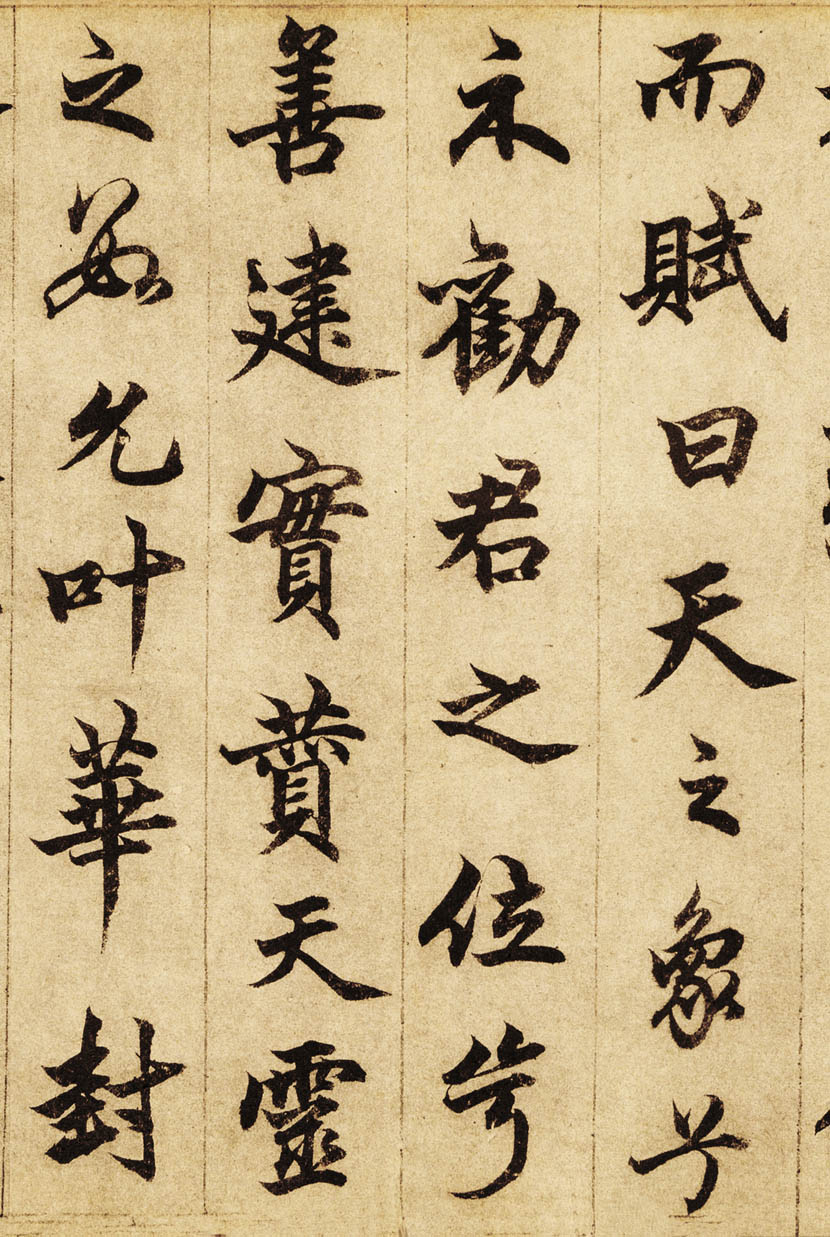 而賦曰天之象兮
示勸君之位兮
善建實蕡天靈
之允叶華封